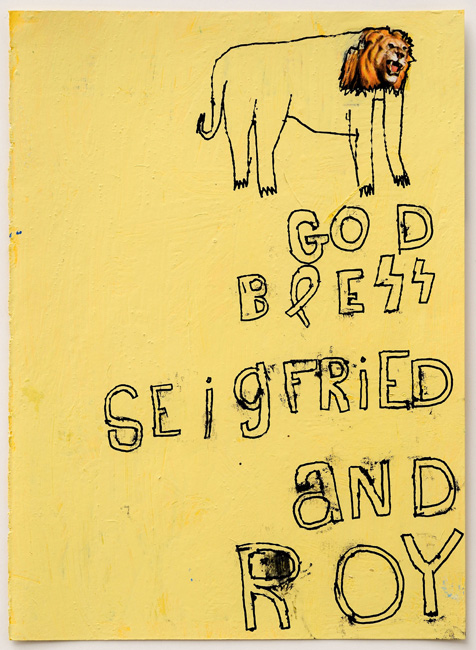 GOD
BlESS
SEigFRiED
aND
ROY